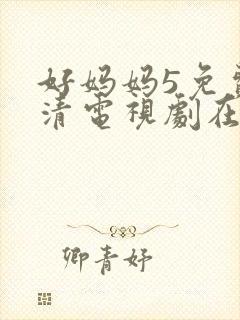 好妈妈5免
清電視劇在
卿青妤